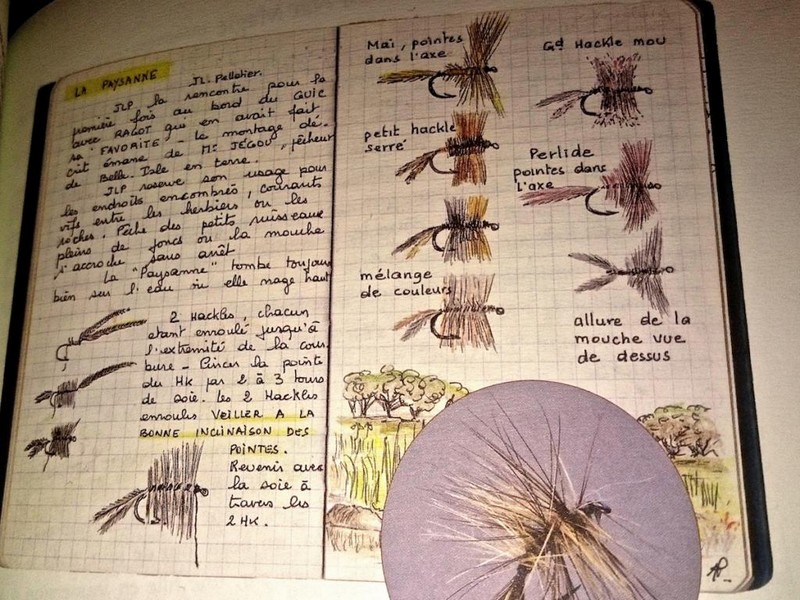 LA PAYSANNE JL. Pelletier.
JLP la rencontre pour la
première fois au bord du GUIC
avec RAGOT qui en avait fait
sa "FAVORITE" - le montage dé-
crit émane de Mr JEGOU, pêcheur
de Belle. Isle en terre.
JLP reserve son usage pour
les endroits encombrés, courants
vifs entre les herbiers ou les
roches. Pêche des petits ruisseaux
pleins de joncs ou la mouche
s'accroche sans arrêt
La "Paysanne" tombe toujours
bien sur l'eau où elle nage haut
2 Hackles, chacun
etant enroulé jusqu'à
l'extremité de la cour
bure - Pincer la pointe
du HK par 2 à 3 tours
de soie. les 2 Hackles
enroulés VEILLER A LA
BONNE INCLINAISON DES
POINTES.
Revenir avec
la soie à
travers les
2 HK.
Mai, pointes
dans l'axe
petit hackle
serré
mélange
de couleurs
Gd Hackle mou
Perlide
pointes dans
l'axe
allure de la
mouche vue
de dessus